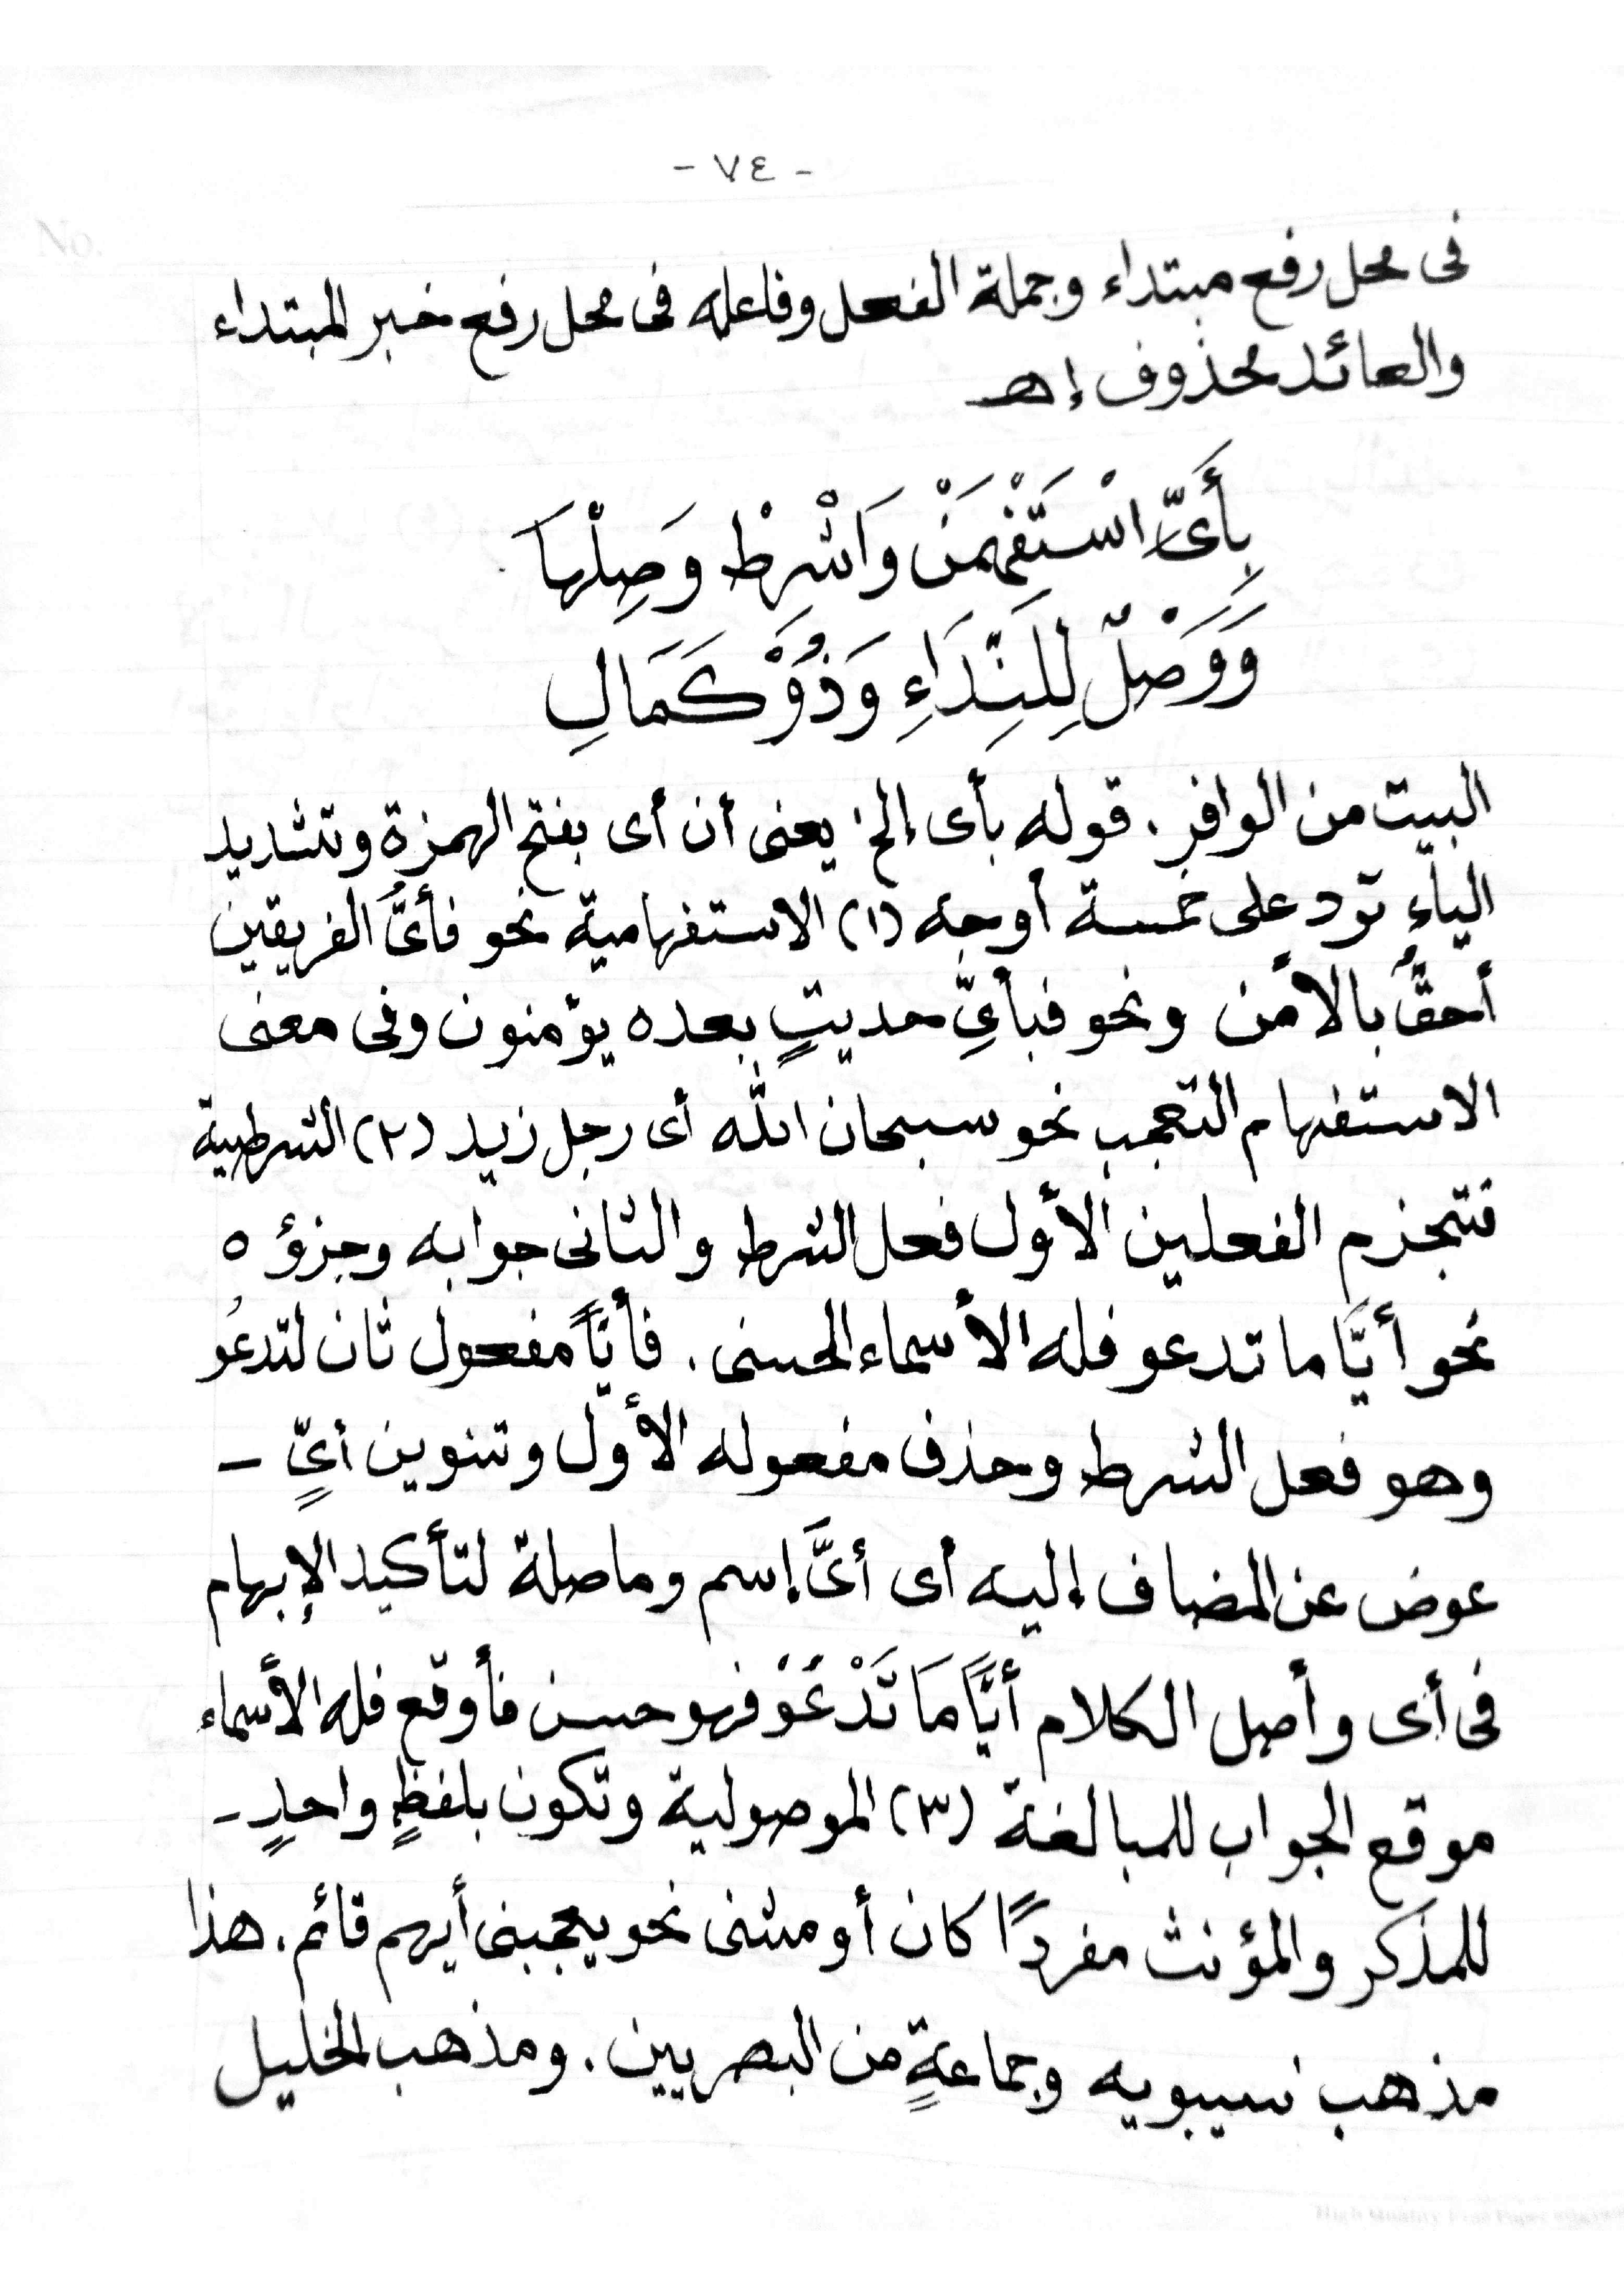 - ٧٤ -
No.
فى محل رفع مبتداء وجملة الفعل وفاعله فى محل رفع خبر المبتداء
والعائد محذوف إهـ
بِأَىّ اسْتَفْهِمَنْ وَاشْرِطْ وَصِلْهَا
وَوَصْلٌ لِلنِّدَاءِ وَذُوْ كَمَالِ
البيت من الوافر . قوله بأى إلخ يعنى أن أى بفتح الهمزة وتشديد
الياء ترد على خمسة أوجه (١) الاستفهامية نحو فأىُّ الفريقين
أحقُّ بالأمن ونحو فبأىِّ حديثٍ بعده يؤمنون وفى معنى
الاستفهام التعجب نحو سبحان الله أى رجل زيد (٢) الشرطية
فتجزم الفعلين الأول فعل الشرط والثانى جوابه وجزؤه
نحو أيًّا ما تدعو فله الأسماء الحسنى . فأيًّا مفعول ثان لتدعُو
وهو فعل الشرط وحذف مفعوله الأول وتنوين أىٍّ -
عوض عن المضاف إليه أى أىَّ إسم وما صلة لتأكيد الإبهام
فى أى وأصل الكلام أيًّا مَا تَدْعُوْ فهو حسن فأوقع فله الأسماء
موقع الجواب للمبالغة (٣) الموصولية وتكون بلفظٍ واحدٍ -
للمذكر والمؤنث مفردًا كان أو مثنى نحو يعجبنى أيهم قائم . هذا
مذهب سيبويه وجماعةٍ من البصريين . ومذهب الخليل